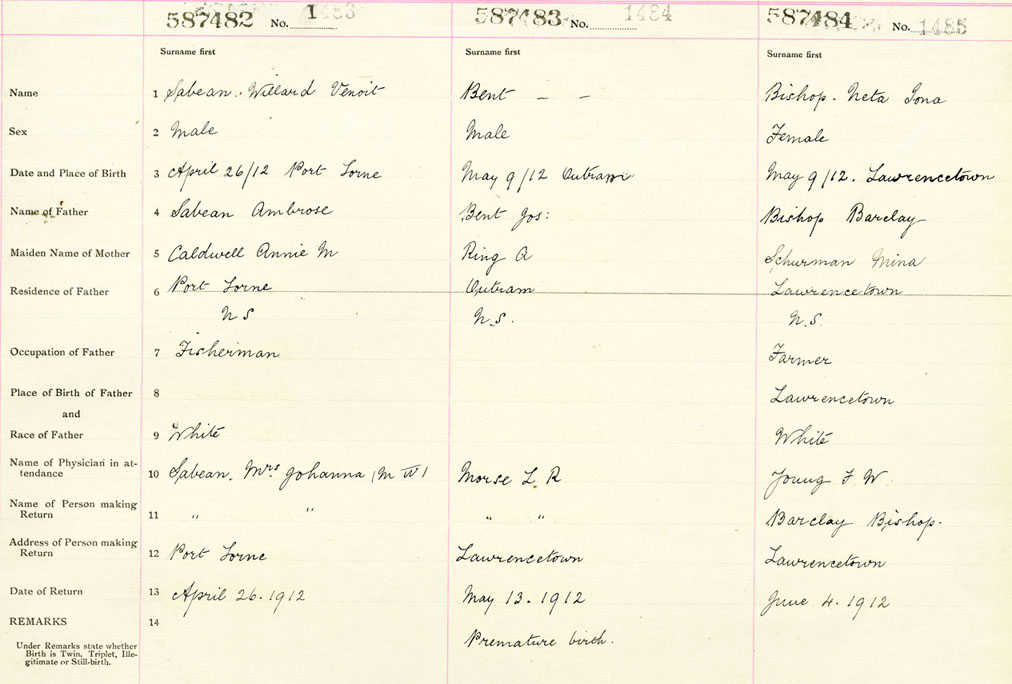 587482 No. 1483 587483 No. 1484 587484 No. 1485
Surname first Surname first Surname first
Name 1 Sabean. Willard Venoit Bent — — Bishop. Neta Iona
Sex 2 Male Male Female
Date and Place of Birth 3 April 26/12 Port Lorne May 9/12 Outram May 9/12. Lawrencetown
Name of Father 4 Sabean Ambrose Bent Jos: Bishop Barclay
Maiden Name of Mother 5 Caldwell Annie M Ring A Schurman Mina
Residence of Father 6 Port Lorne Outram Lawrencetown
N S N.S. N.S.
Occupation of Father 7 Fisherman Farmer
Place of Birth of Father 8 Lawrencetown
and
Race of Father 9 White White
Name of Physician in at-
tendance 10 Sabean. Mrs Johanna (M W) Morse L R Young F W
Name of Person making
Return 11 " " " " Barclay Bishop.
Address of Person making
Return 12 Port Lorne Lawrencetown Lawrencetown
Date of Return 13 April 26. 1912 May 13. 1912 June 4. 1912
REMARKS 14
Premature birth.
Under Remarks state whether
Birth is Twin, Triplet, Ille-
gitimate or Still-birth.